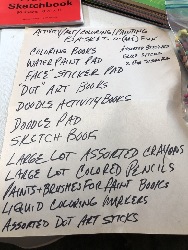 Sketchbook
ACTIVITY/ART/COLORING/PAINTING
COLORING BOOKS
WATER PAINT PAD
FACE STICKER PAD
DOT ART BOOKS
DOODLE ACTIVITY BOOKS
DOODLE PAD
SKETCH BOOK
LARGE LOT ASSORTED CRAYONS
LARGE LOT COLORED PENCILS
PAINTS + BRUSHES FOR PAINT BOOKS
LIQUID COLORING MARKERS
ASSORTED DOT ART STICKS